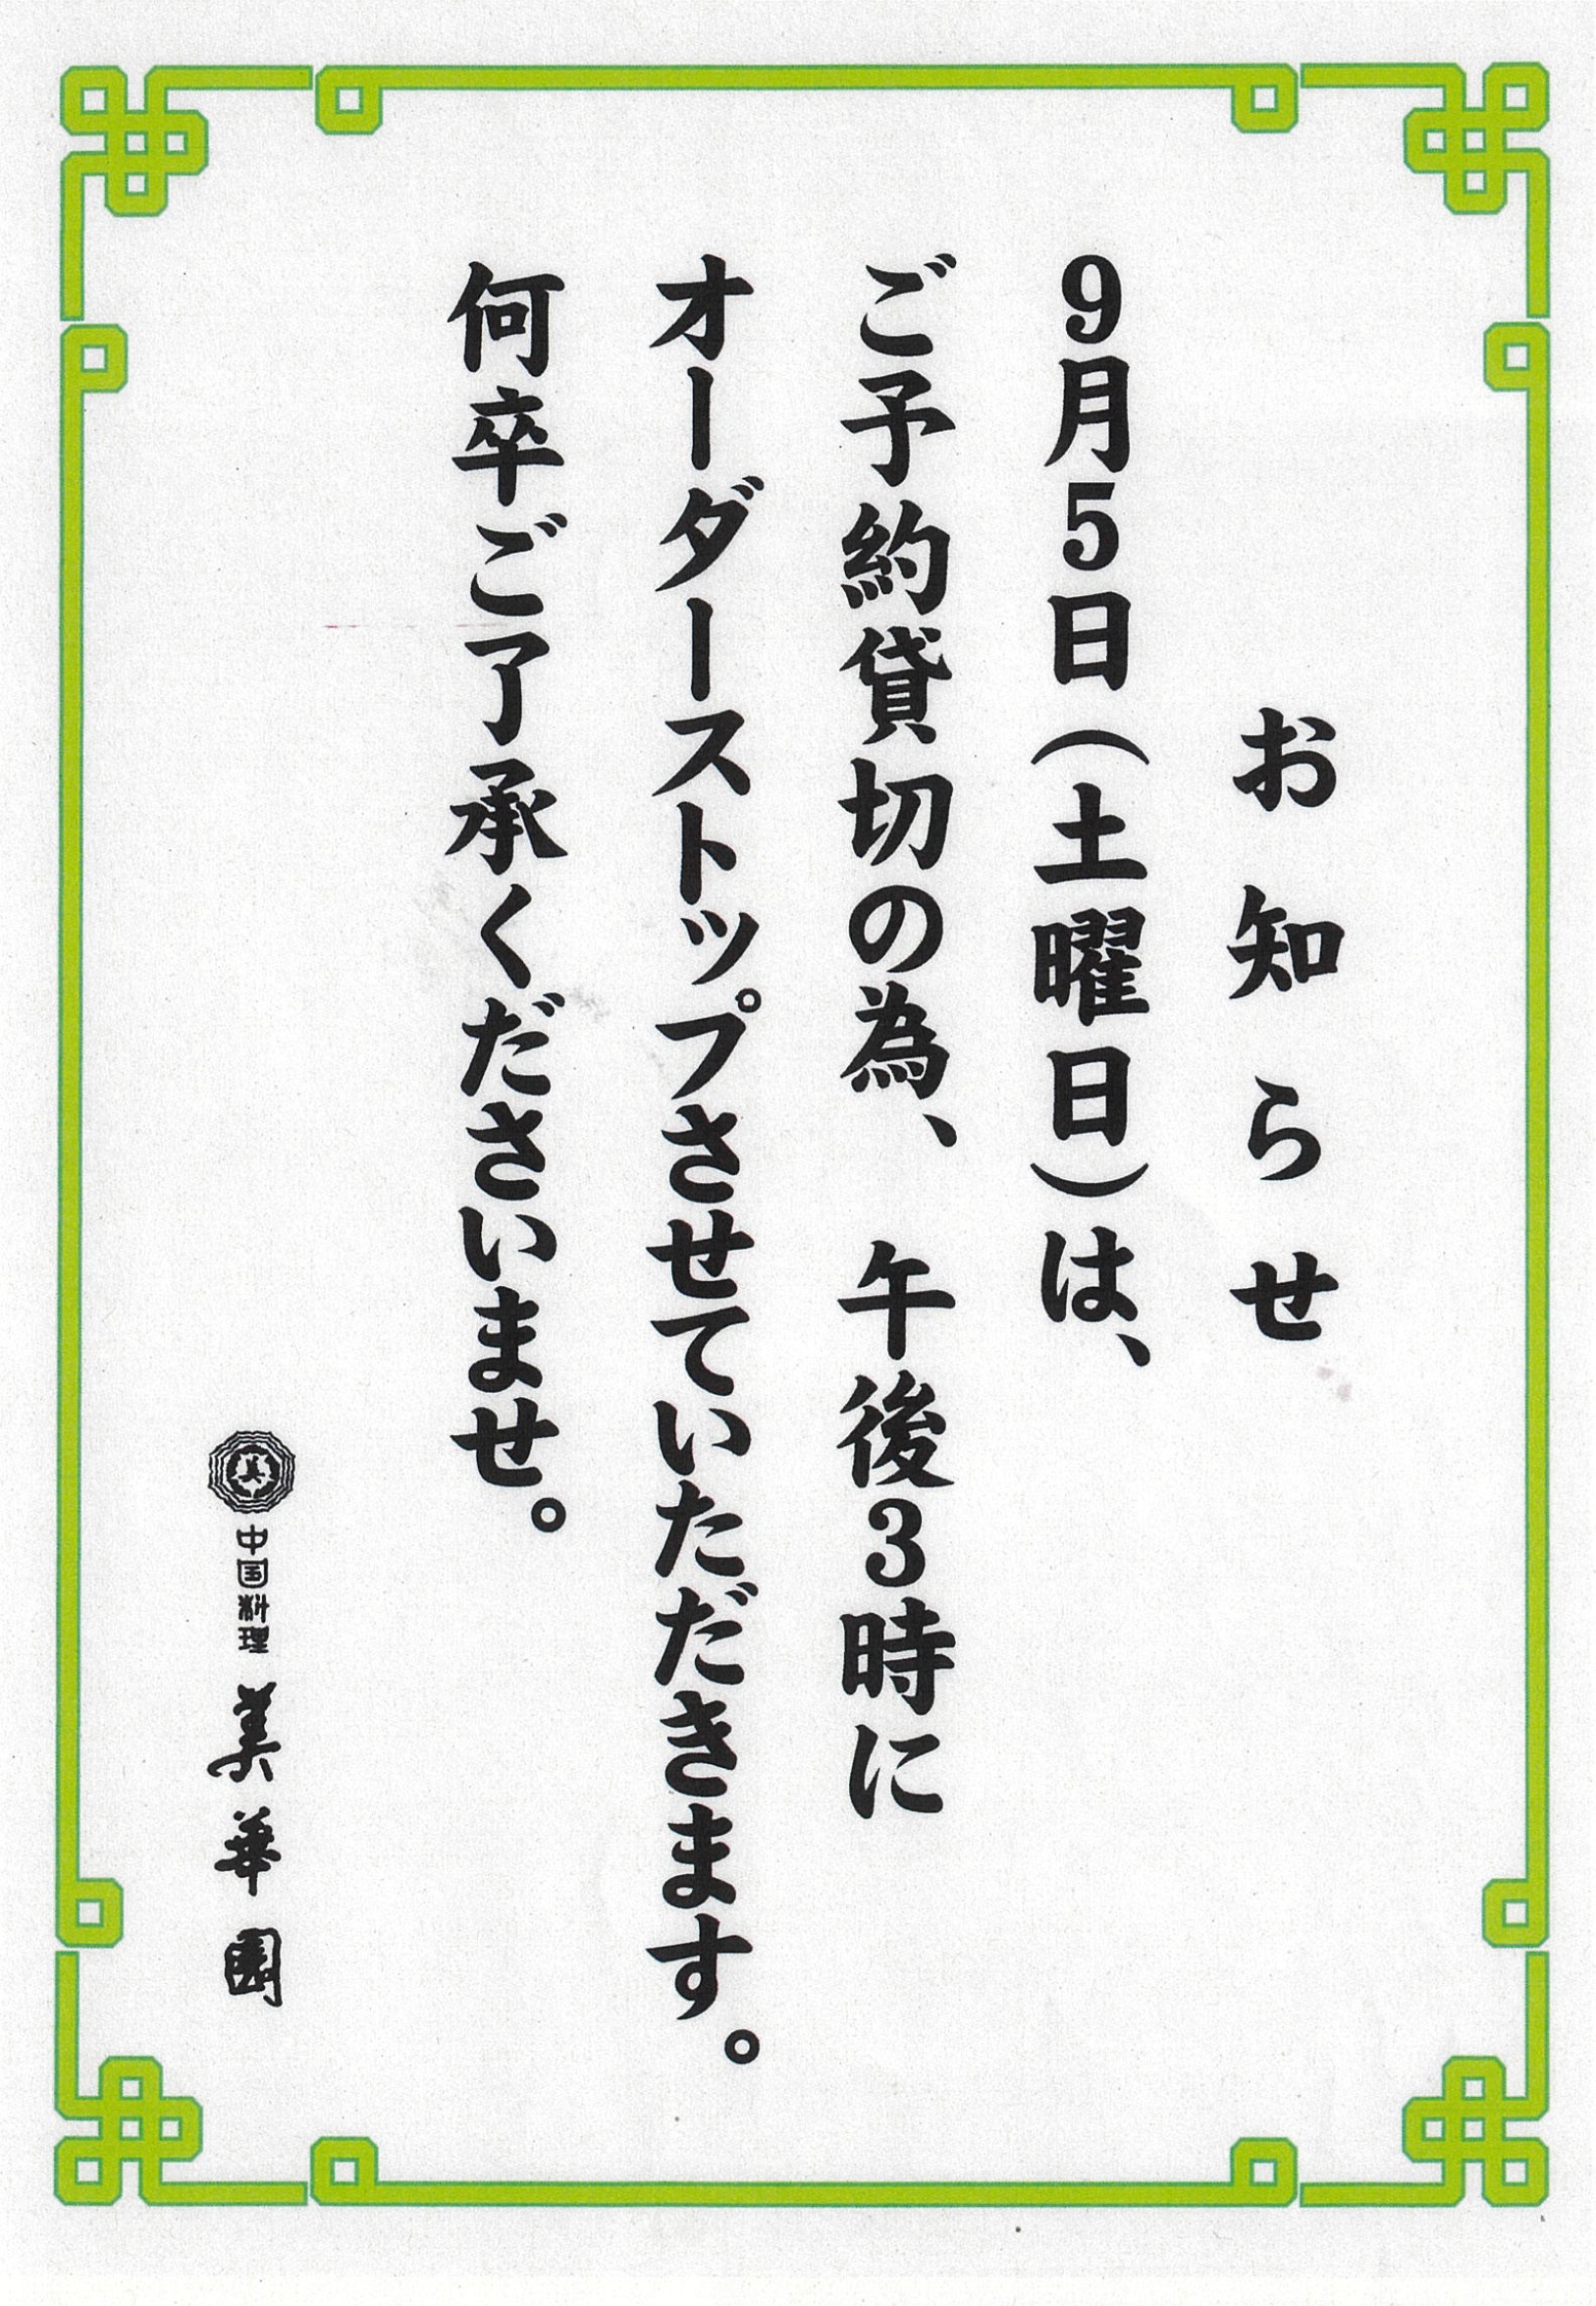 お知らせ
9月5日(土曜日)は、
ご予約貸切の為、　午後3時に
オーダーストップさせていただきます。
何卒ご了承くださいませ。
美
中国料理 美華園